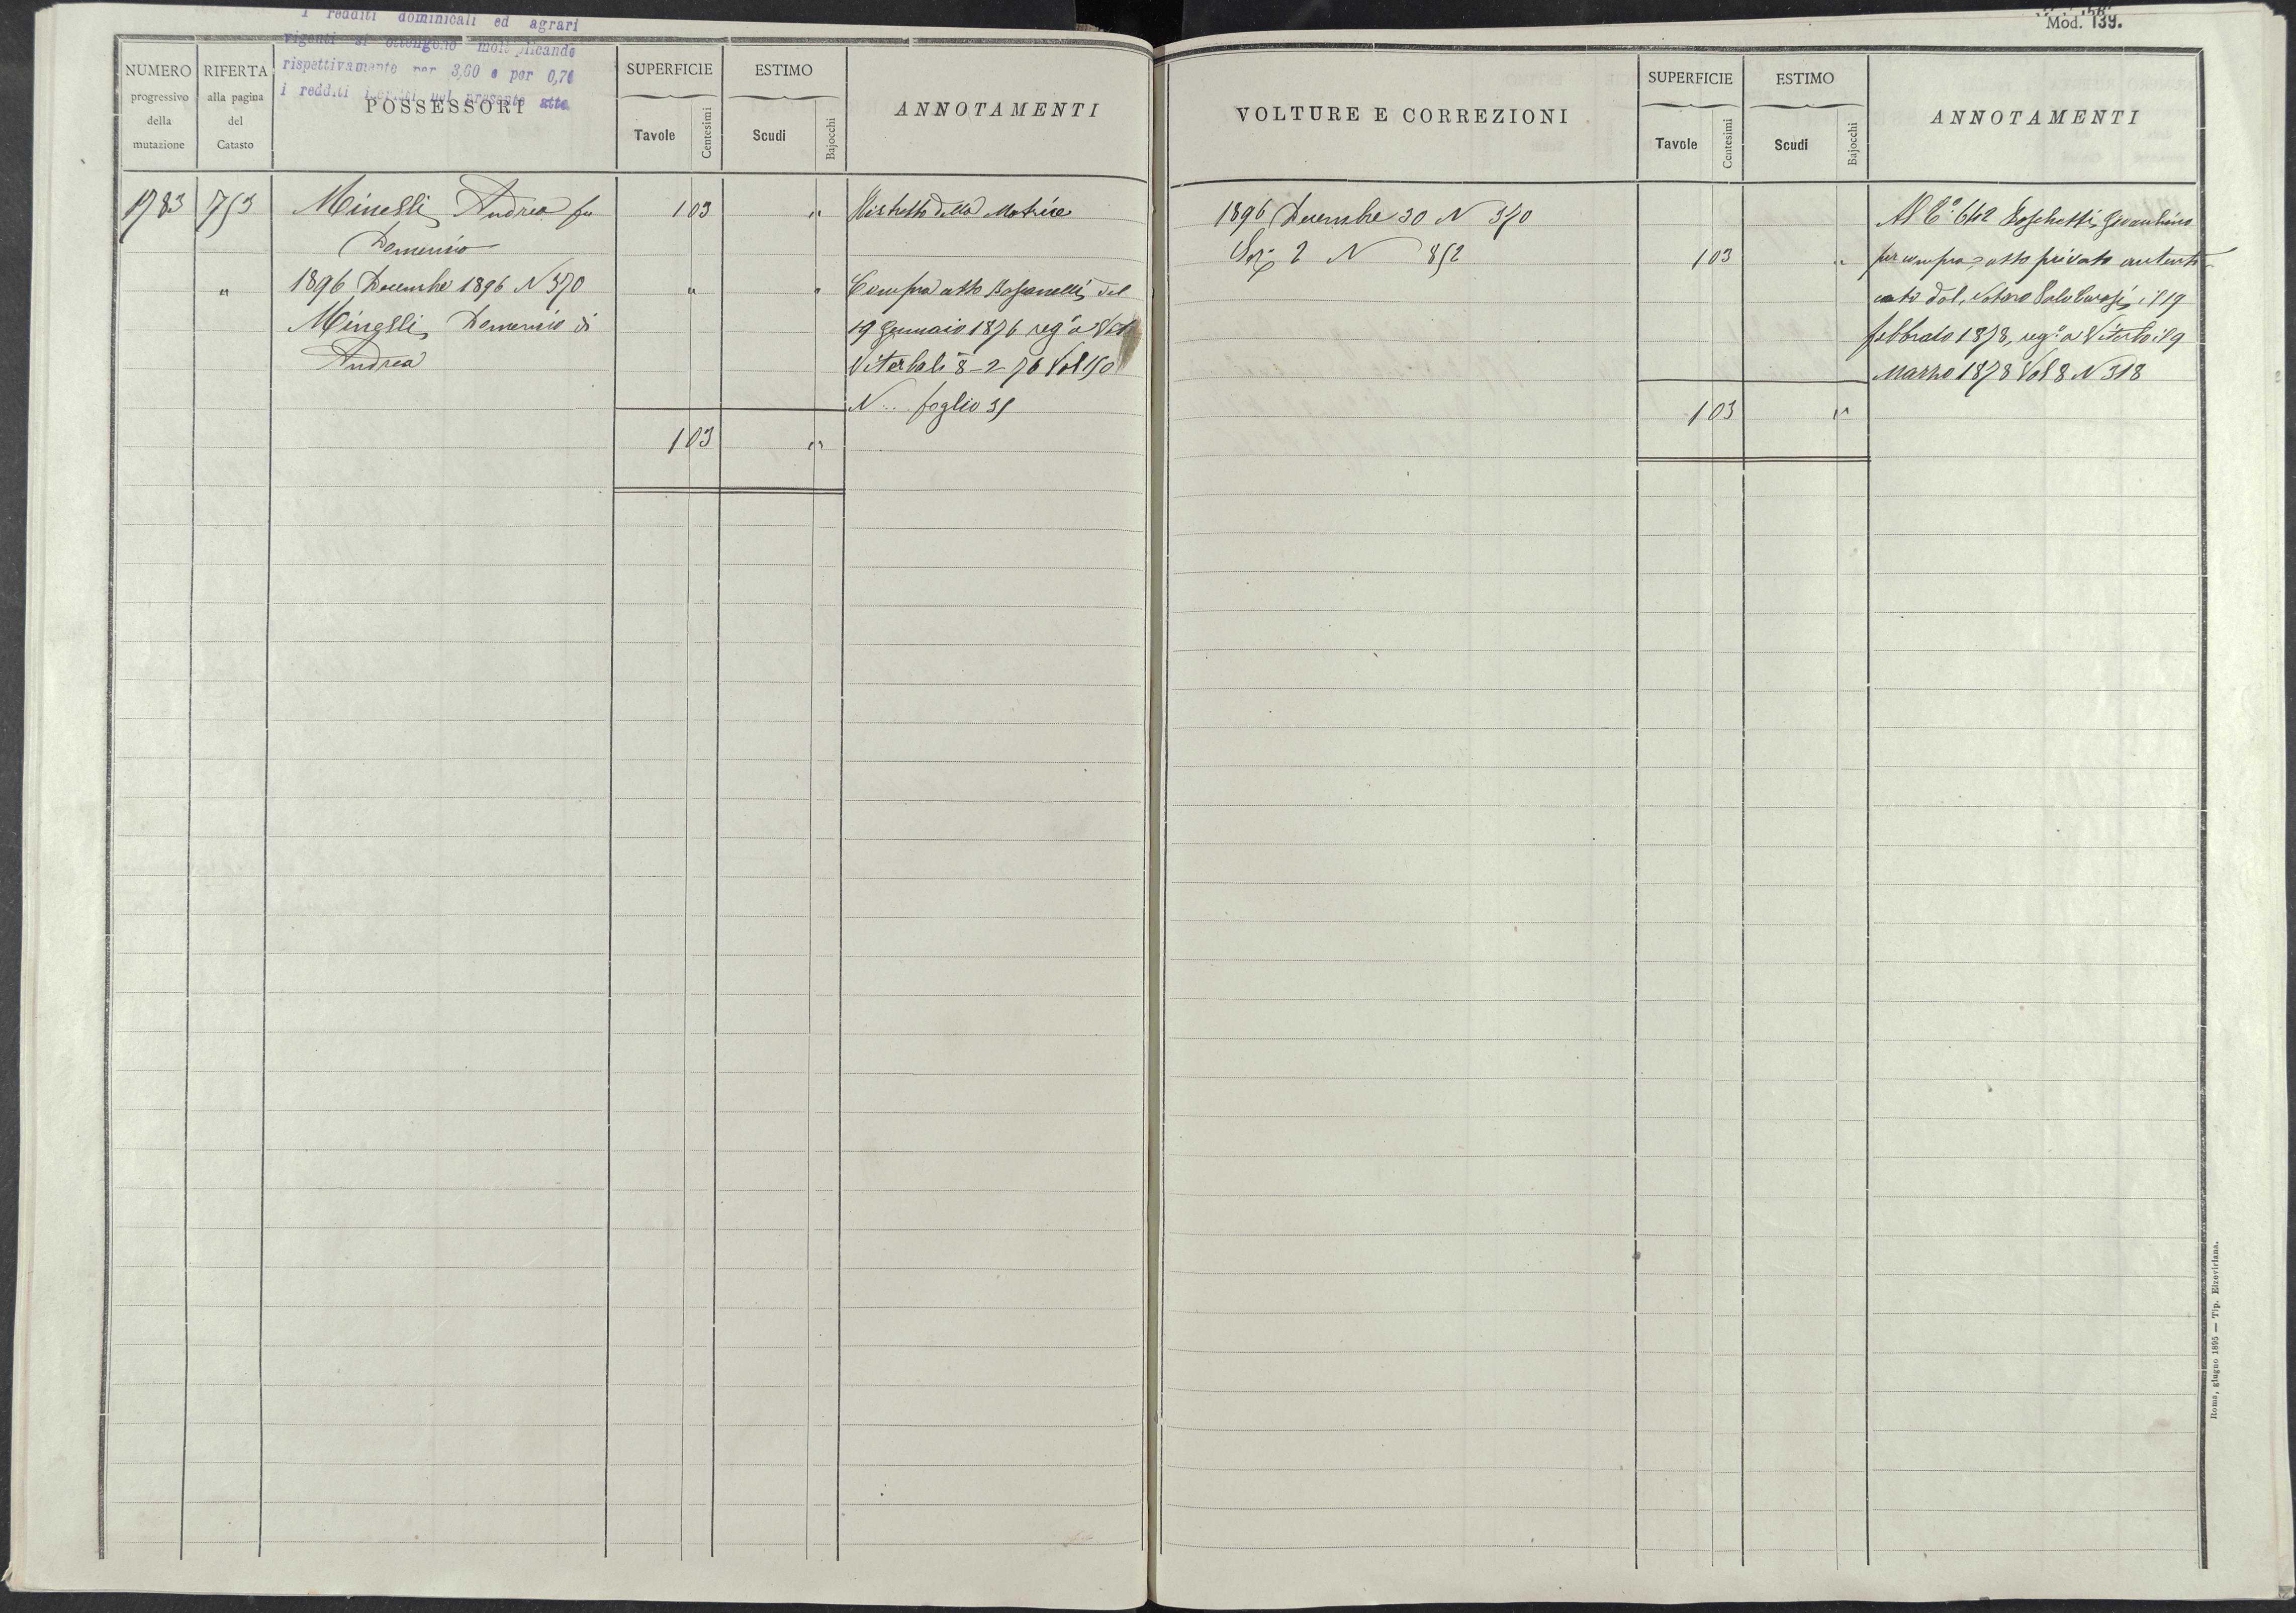 I redditi dominicali ed agrari
vigenti si ottengono moltiplicando
rispettivamente per 3,60 e per 0,70
i redditi iscritti nel presente atto
NUMERO
progressivo
della
mutazione
RIFERTA
alla pagina
del
Catasto
POSSESSORI
SUPERFICIE
Tavole
Centesimi
ESTIMO
Scudi
Bajocchi
ANNOTAMENTI
1783 753 Minelli Andrea fu 1 03 " Ristretto della Matrice
Domenico
" 1896 Decembre 1896 N 370 " " Compra atto Bassanelli del
Minelli Domenico di 19 Gennaio 1876 reg.o a
Andrea Viterbo li 8-2-76 Vol 190
N... foglio 35
1 03 "
Mod. 139.
VOLTURE E CORREZIONI
SUPERFICIE
Tavole
Centesimi
ESTIMO
Scudi
Bajocchi
ANNOTAMENTI
1896 Decembre 30 N 370 Al C.o 612 Boschetti
Sez 2 N 852 1 03 " per compra, atto privato autenti
cato dal Notaro il 19
febbraio 1878, reg.o a Viterbo il 9
Marzo 1878 Vol 8 N 318
1 03 "
Roma, giugno 1895 — Tip. Elzeviriana.